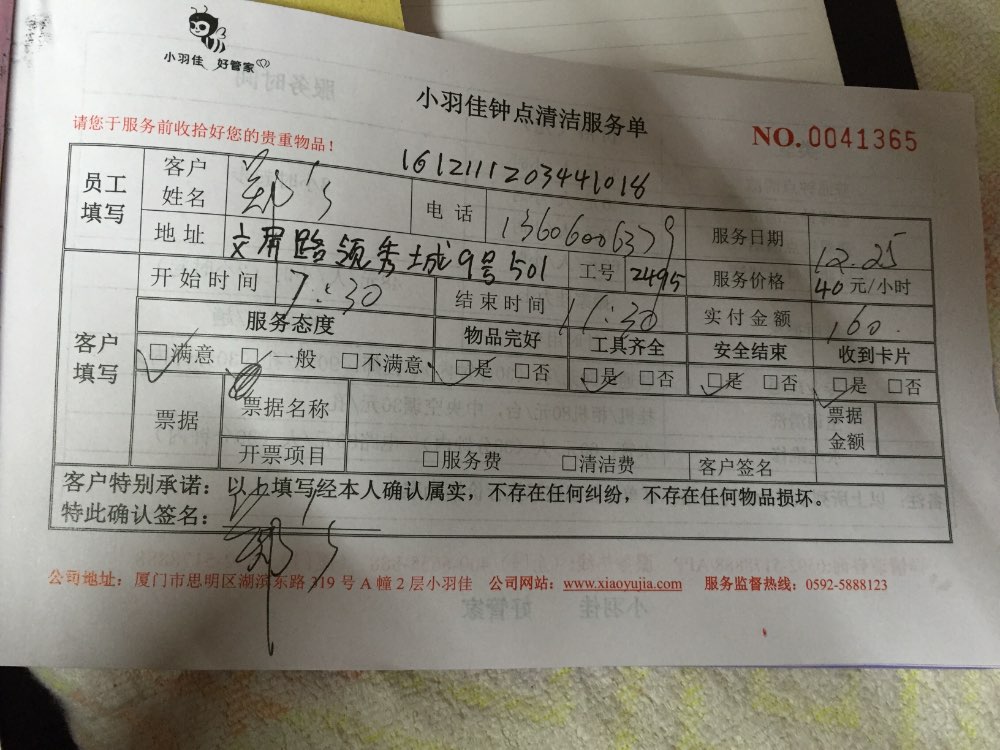 小羽佳 好管家
小羽佳钟点清洁服务单
NO. 0041365
请您于服务前收拾好您的贵重物品！
1612111203441018
员工填写
客户姓名 郑
电话 13606006379
服务日期 12.25
地址 文屏路领秀城9号501
工号 2495
服务价格 40元/小时
客户填写
开始时间 7:30
结束时间 11:30
实付金额 160.
服务态度 物品完好 工具齐全 安全结束 收到卡片
□满意 □一般 □不满意 □是 □否 □是 □否 □是 □否 □是 □否
票据 票据名称 票据金额
开票项目 □服务费 □清洁费 客户签名
客户特别承诺：以上填写经本人确认属实，不存在任何纠纷，不存在任何物品损坏。
特此确认签名： 郑
公司地址：厦门市思明区湖滨东路319号A幢2层小羽佳 公司网站：www.xiaoyujia.com 服务监督热线：0592-5888123